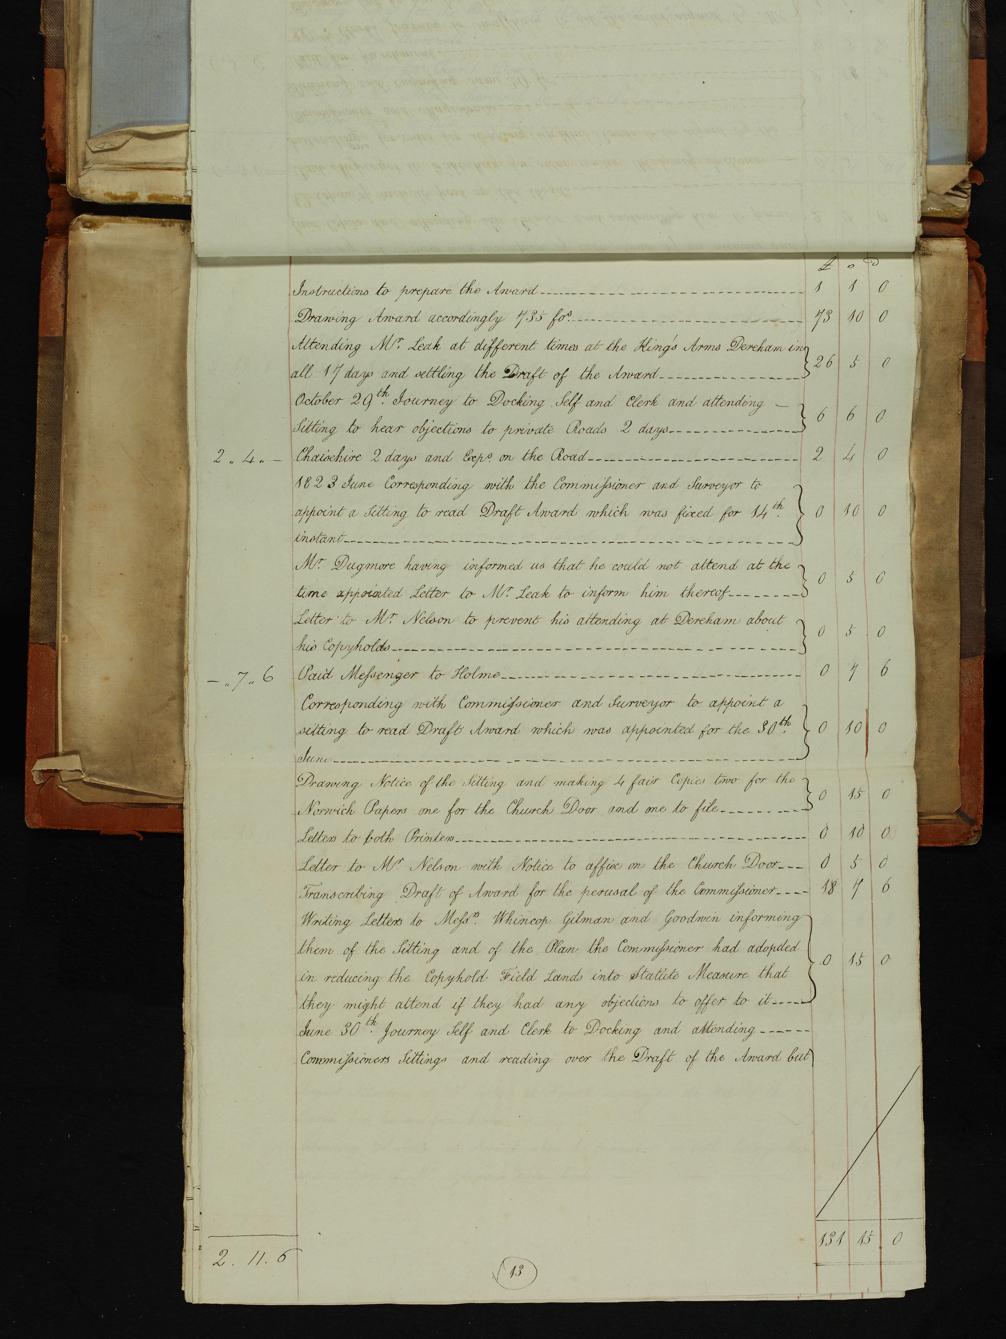 £ s D
Instructions to prepare the Award 1 1 0
Drawing Award accordingly 735 fos. 73 10 0
Attending Mr. Leak at different times at the King's Arms Dereham in
all 17 days and settling the Draft of the Award 26 5 0
October 29th. Journey to Docking Self and Clerk and attending
Sitting to hear objections to private Roads 2 days 6 6 0
2 .. 4 .. - Chaisehire 2 days and Exps. on the Road 2 4 0
1823 June Corresponding with the Commissioner and Surveyor to
appoint a Sitting to read Draft Award which was fixed for 14th.
instant 0 10 0
Mr. Dugmore having informed us that he could not attend at the
time appointed Letter to Mr. Leak to inform him thereof 0 5 0
Letter to Mr. Nelson to prevent his attending at Dereham about
his Copyholds 0 5 0
- .. 7 .. 6 Paid Messenger to Holme 0 7 6
Corresponding with Commissioner and Surveyor to appoint a
sitting to read Draft Award which was appointed for the 30th.
June 0 10 0
Drawing Notice of the Sitting and making 4 fair Copies two for the
Norwich Papers one for the Church Door and one to file 0 15 0
Letters to both Printers 0 10 0
Letter to Mr. Nelson with Notice to affix on the Church Door 0 5 0
Transcribing Draft of Award for the perusal of the Commissioner 18 7 6
Writing Letters to Messrs. Whincop Gilman and Goodwin informing
them of the Sitting and of the Plan the Commissioner had adopded
in reducing the Copyhold Field Lands into Statute Measure that
they might attend if they had any objections to offer to it 0 15 0
June 30th. Journey Self and Clerk to Docking and attending
Commissioners Sittings and reading over the Draft of the Award but
131 15 0
2 . 11 . 6
13